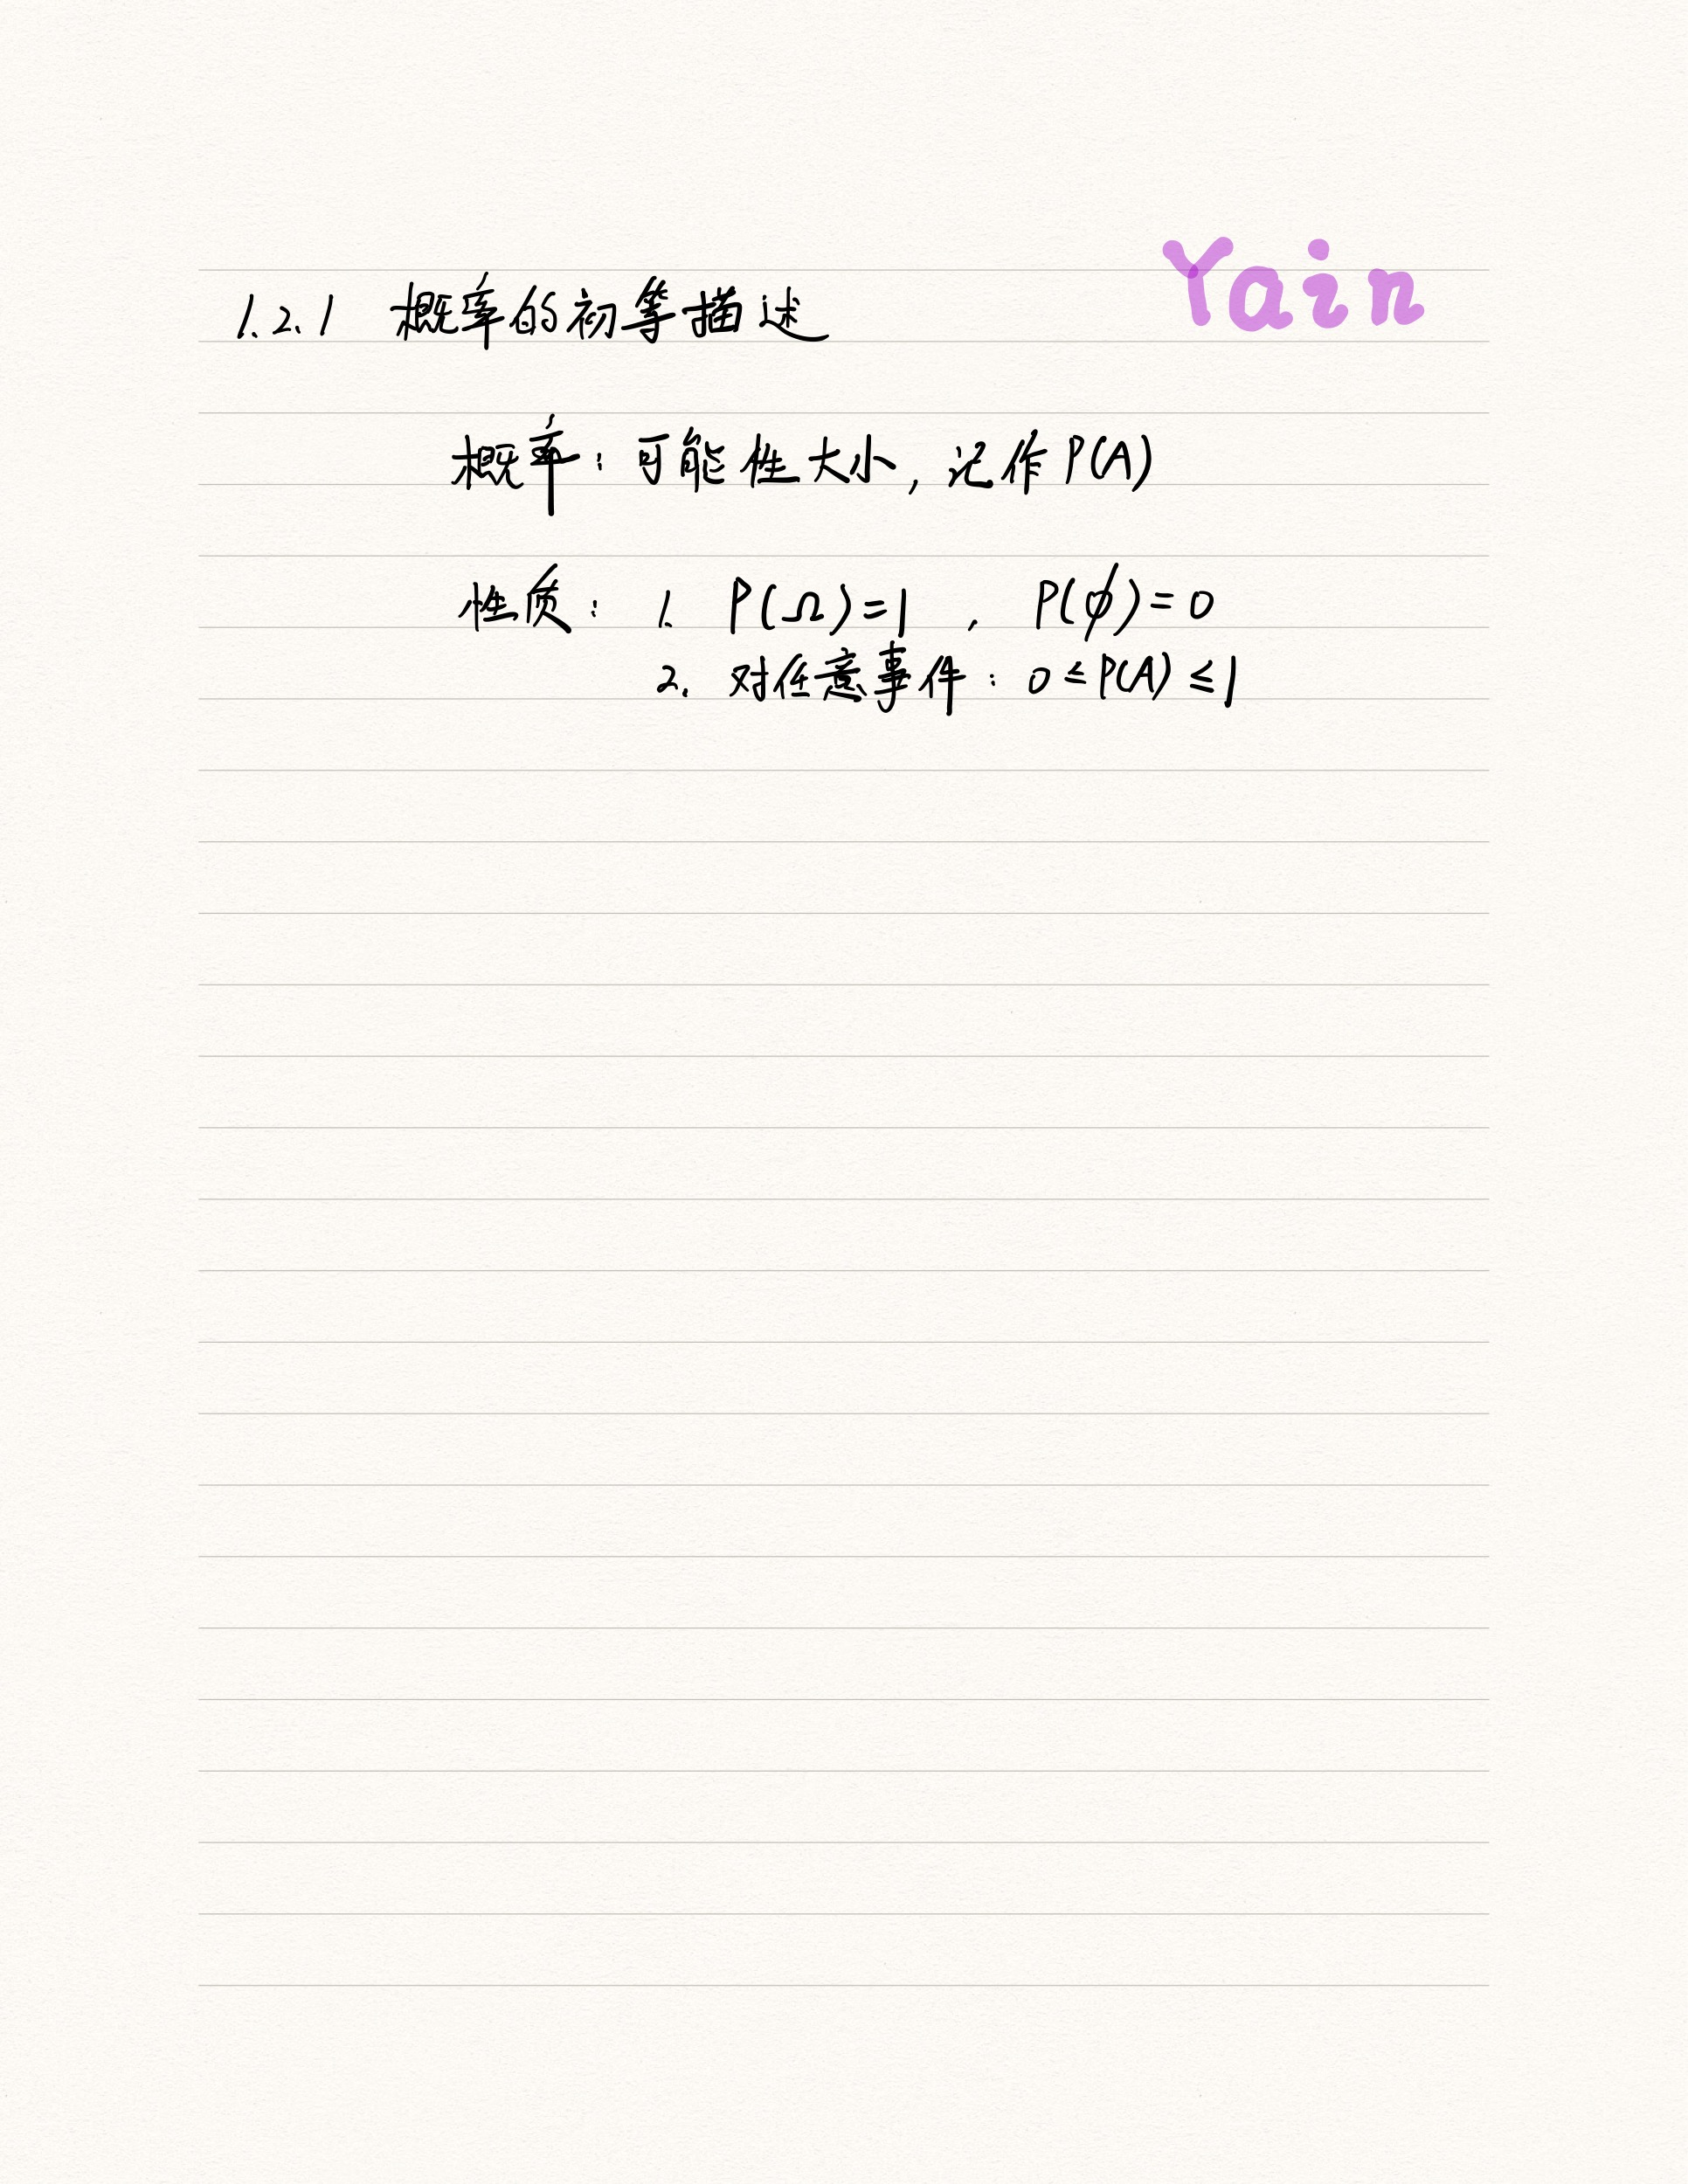 Yain
1.2.1 概率的初等描述
概率：可能性大小，记作P(A)
性质：1. P(Ω)=1 ， P(ϕ)=0
2. 对任意事件：0≤P(A)≤1